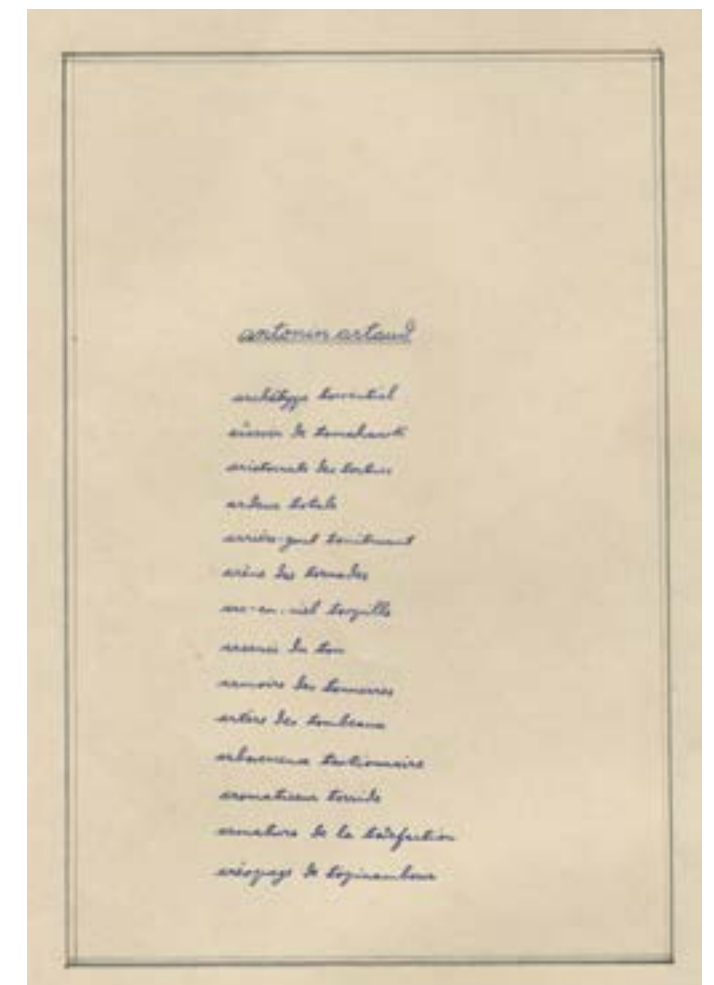 antonin artaud
archétype torrentiel
de tomahawk
aristocrate des tortures
ardeur totale
arrière-goût tonitruant
arène des tornades
arc-en-ciel torpille
arsenic du ton
armoire des tonnerres
artère des tombeaux
tortionnaire
torride
armature de la
aréopage de topinambour